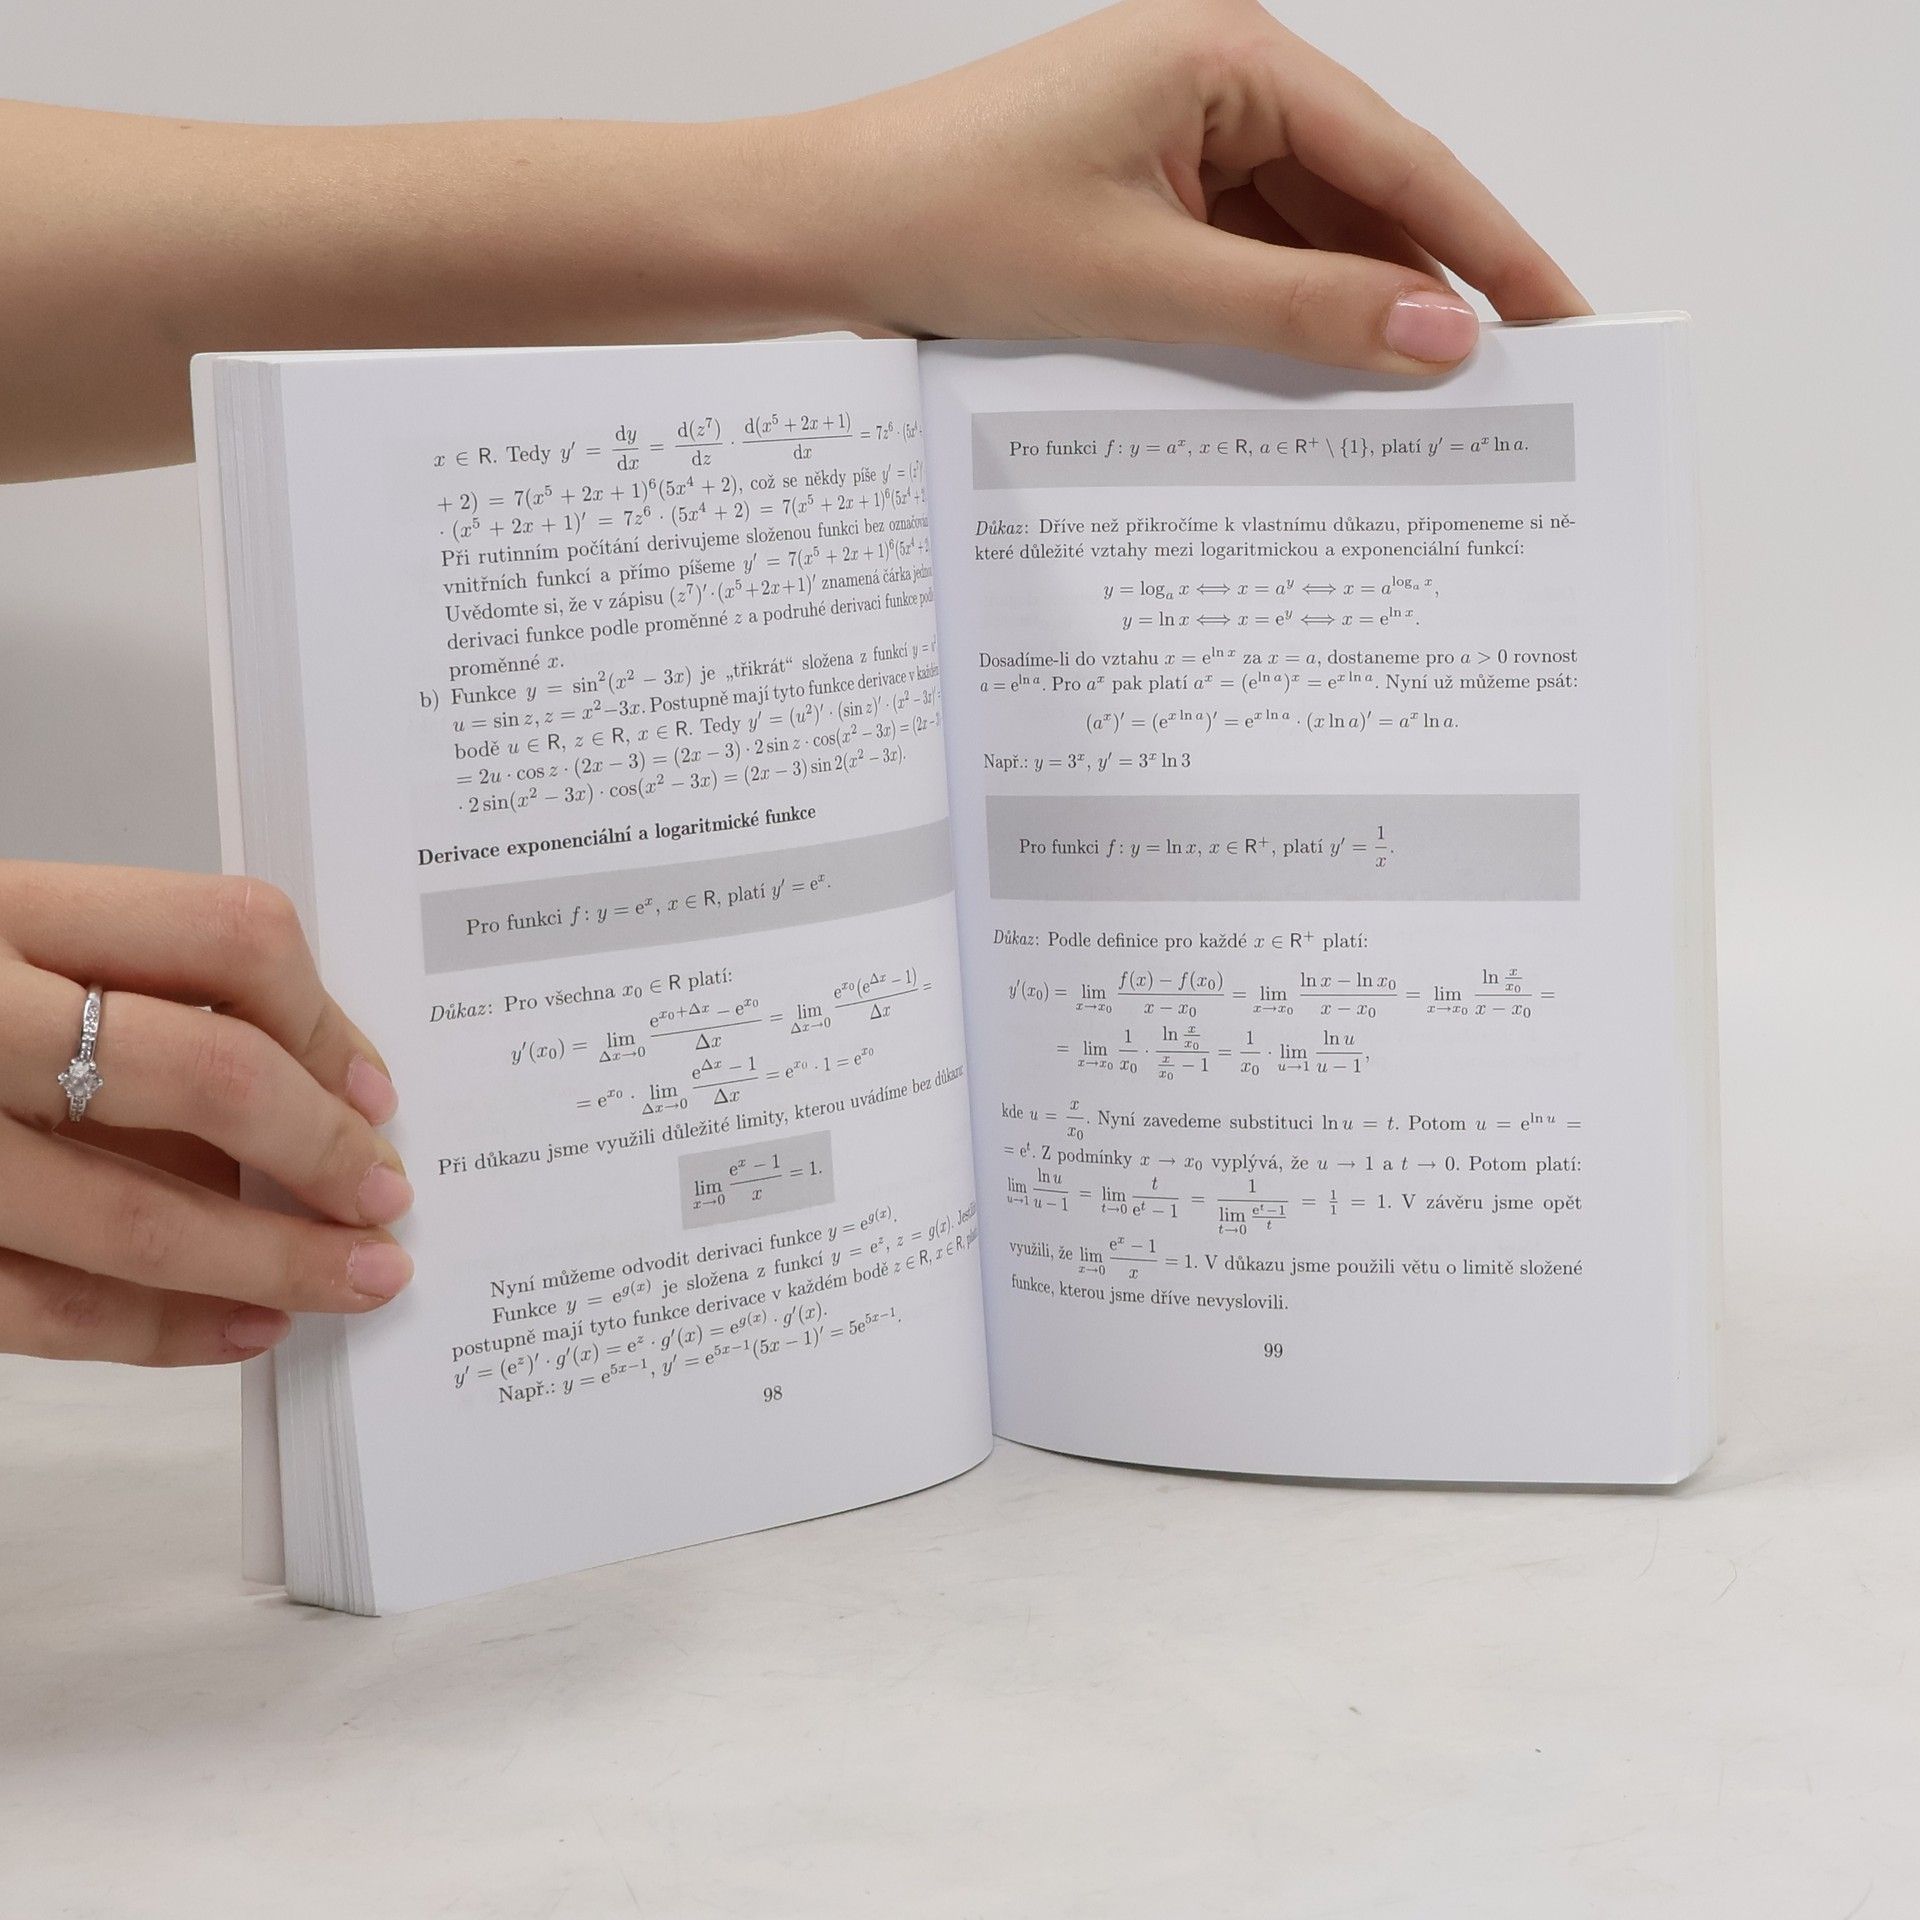 x ∈ R. Tedy y′ = dy/dx = d(z⁷)/dz · d(x⁵ + 2x + 1)/dx = 7z⁶ · (5x⁴
+ 2) = 7(x⁵ + 2x + 1)⁶(5x⁴ + 2), což se někdy píše y′ = (z⁷)′
· (x⁵ + 2x + 1)′ = 7z⁶ · (5x⁴ + 2) = 7(x⁵ + 2x + 1)⁶(5x⁴ + 2
Při rutinním počítání derivujeme složenou funkci bez
vnitřních funkcí a přímo píšeme y′ = 7(x⁵ + 2x + 1)⁶(5x⁴ + 2
Uvědomte si, že v zápisu (z⁷)′·(x⁵+2x+1)′ znamená čárka
derivaci funkce podle proměnné z a podruhé derivaci funkce
proměnné x.
b) Funkce y = sin²(x² − 3x) je „třikrát“ složena z funkcí y =
u = sin z, z = x²−3x. Postupně mají tyto funkce derivace v
bodě u ∈ R, z ∈ R, x ∈ R. Tedy y′ = (u²)′ · (sin z)′ · (x² − 3x)′ =
= 2u · cos z · (2x − 3) = (2x − 3) · 2 sin z · cos(x² − 3x) = (2x −
· 2 sin(x² − 3x) · cos(x² − 3x) = (2x − 3) sin 2(x² − 3x).
Derivace exponenciální a logaritmické funkce
Pro funkci f: y = eˣ, x ∈ R, platí y′ = eˣ.
Důkaz: Pro všechna x₀ ∈ R platí:
y′(x₀) = lim_{Δx→0} (e^{x₀+Δx} − e^{x₀})/Δx = lim_{Δx→0} e^{x₀}(e^{Δx} − 1)/Δx =
= e^{x₀} · lim_{Δx→0} (e^{Δx} − 1)/Δx = e^{x₀} · 1 = e^{x₀}
Při důkazu jsme využili důležité limity, kterou uvádíme bez důkazu:
lim_{x→0} (eˣ − 1)/x = 1.
Nyní můžeme odvodit derivaci funkce y = e^{g(x)}.
Funkce y = e^{g(x)} je složena z funkcí y = e^z, z = g(x).
postupně mají tyto funkce derivace v každém bodě z ∈ R, x ∈ R,
y′ = (e^z)′ · g′(x) = e^z · g′(x) = e^{g(x)} · g′(x).
Např.: y = e^{5x−1}, y′ = e^{5x−1}(5x − 1)′ = 5e^{5x−1}.
98
Pro funkci f: y = aˣ, x ∈ R, a ∈ R⁺ \ {1}, platí y′ = aˣ ln a.
Důkaz: Dříve než přikročíme k vlastnímu důkazu, připomeneme si ně-
které důležité vztahy mezi logaritmickou a exponenciální funkcí:
y = logₐ x ⟺ x = a^y ⟺ x = a^{logₐ x},
y = ln x ⟺ x = e^y ⟺ x = e^{ln x}.
Dosadíme-li do vztahu x = e^{ln x} za x = a, dostaneme pro a > 0 rovnost
a = e^{ln a}. Pro aˣ pak platí aˣ = (e^{ln a})ˣ = e^{x ln a}. Nyní už můžeme psát:
(aˣ)′ = (e^{x ln a})′ = e^{x ln a} · (x ln a)′ = aˣ ln a.
Např.: y = 3ˣ, y′ = 3ˣ ln 3
Pro funkci f: y = ln x, x ∈ R⁺, platí y′ = 1/x.
Důkaz: Podle definice pro každé x ∈ R⁺ platí:
y′(x₀) = lim_{x→x₀} (f(x) − f(x₀))/(x − x₀) = lim_{x→x₀} (ln x − ln x₀)/(x − x₀) = lim_{x→x₀} (ln x/x₀)/(x − x₀) =
= lim_{x→x₀} 1/x₀ · (ln x/x₀)/(x/x₀ − 1) = 1/x₀ · lim_{u→1} ln u/(u − 1),
kde u = x/x₀. Nyní zavedeme substituci ln u = t. Potom u = e^{ln u} =
= e^t. Z podmínky x → x₀ vyplývá, že u → 1 a t → 0. Potom platí:
lim_{u→1} ln u/(u − 1) = lim_{t→0} t/(e^t − 1) = 1/(lim_{t→0} (e^t−1)/t) = 1/1 = 1. V závěru jsme opět
využili, že lim_{x→0} (eˣ − 1)/x = 1. V důkazu jsme použili větu o limitě složené
funkce, kterou jsme dříve nevyslovili.
99